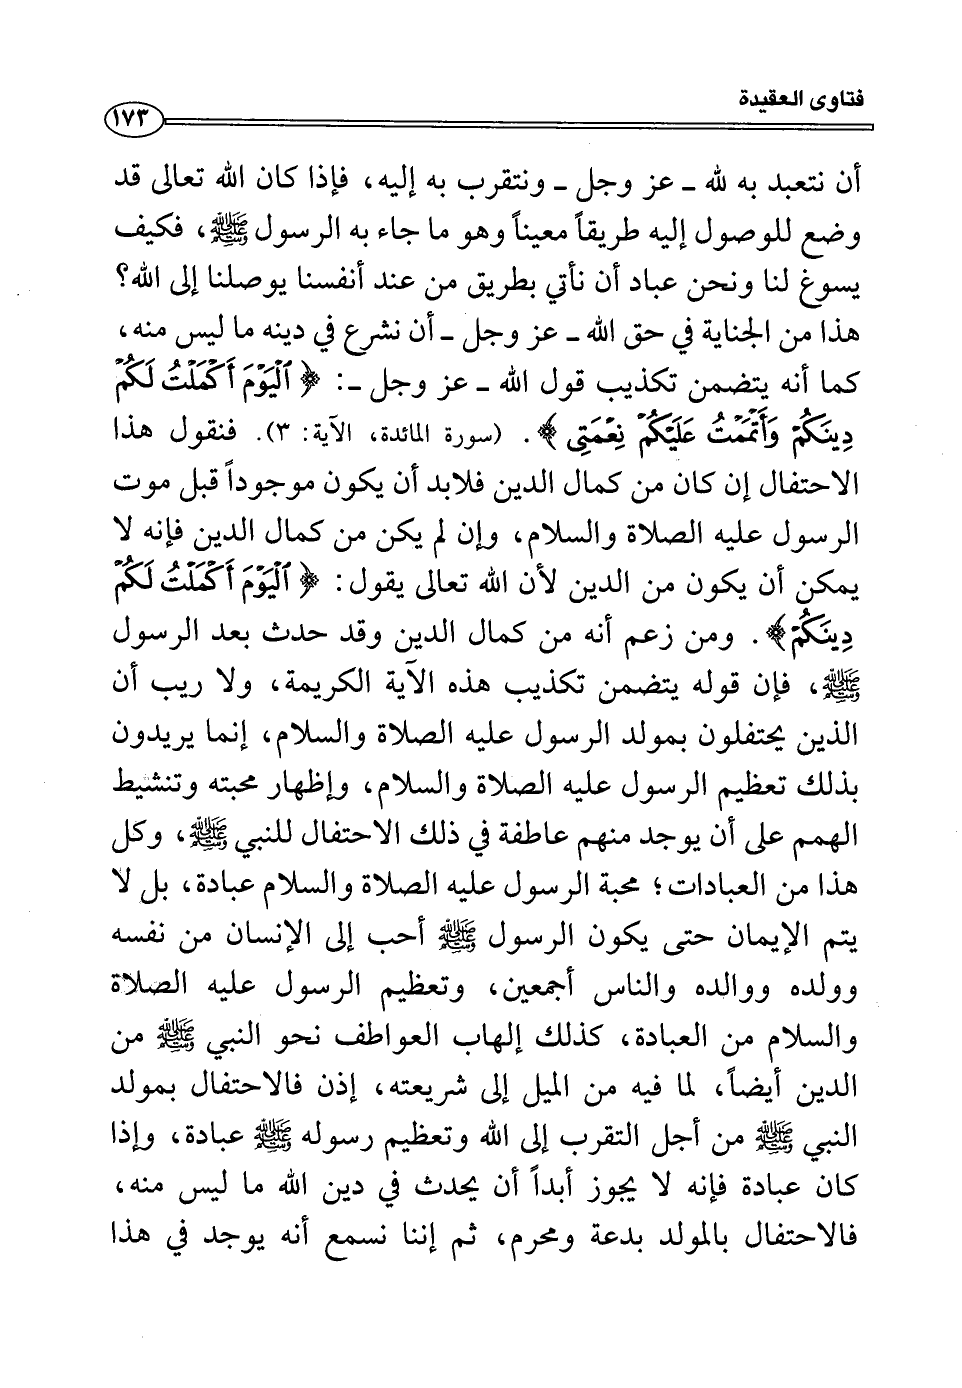 فتاوى العقيدة
١٧٣
أن نتعبد به لله ـ عز وجل ـ ونتقرب به إليه، فإذا كان الله تعالى قد
وضع للوصول إليه طريقاً معيناً وهو ما جاء به الرسول ﷺ، فكيف
يسوغ لنا ونحن عباد أن نأتي بطريق من عند أنفسنا يوصلنا إلى الله؟
هذا من الجناية في حق الله ـ عز وجل ـ أن نشرع في دينه ما ليس منه،
كما أنه يتضمن تكذيب قول الله ـ عز وجل ـ: ﴿ ٱلۡيَوۡمَ أَكۡمَلۡتُ لَكُمۡ
دِينَكُمۡ وَأَتۡمَمۡتُ عَلَيۡكُمۡ نِعۡمَتِي ﴾. (سورة المائدة، الآية: ٣). فنقول هذا
الاحتفال إن كان من كمال الدين فلابد أن يكون موجوداً قبل موت
الرسول عليه الصلاة والسلام، وإن لم يكن من كمال الدين فإنه لا
يمكن أن يكون من الدين لأن الله تعالى يقول: ﴿ ٱلۡيَوۡمَ أَكۡمَلۡتُ لَكُمۡ
دِينَكُمۡ﴾. ومن زعم أنه من كمال الدين وقد حدث بعد الرسول
ﷺ، فإن قوله يتضمن تكذيب هذه الآية الكريمة، ولا ريب أن
الذين يحتفلون بمولد الرسول عليه الصلاة والسلام، إنما يريدون
بذلك تعظيم الرسول عليه الصلاة والسلام، وإظهار محبته وتنشيط
الهمم على أن يوجد منهم عاطفة في ذلك الاحتفال للنبي ﷺ، وكل
هذا من العبادات؛ محبة الرسول عليه الصلاة والسلام عبادة، بل لا
يتم الإيمان حتى يكون الرسول ﷺ أحب إلى الإنسان من نفسه
وولده ووالده والناس أجمعين، وتعظيم الرسول عليه الصلاة
والسلام من العبادة، كذلك إلهاب العواطف نحو النبي ﷺ من
الدين أيضاً، لما فيه من الميل إلى شريعته، إذن فالاحتفال بمولد
النبي ﷺ من أجل التقرب إلى الله وتعظيم رسوله ﷺ عبادة، وإذا
كان عبادة فإنه لا يجوز أبداً أن يحدث في دين الله ما ليس منه،
فالاحتفال بالمولد بدعة ومحرم، ثم إننا نسمع أنه يوجد في هذا